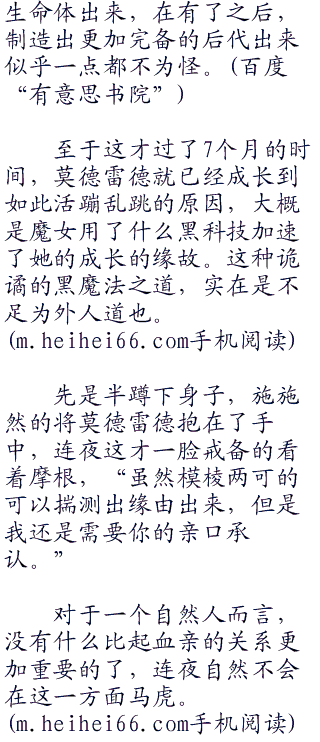 生命体出来，在有了之后，
制造出更加完备的后代出来
似乎一点都不为怪。(百度
“有意思书院”)
至于这才过了7个月的时
间，莫德雷德就已经成长到
如此活蹦乱跳的原因，大概
是魔女用了什么黑科技加速
了她的成长的缘故。这种诡
谲的黑魔法之道，实在是不
足为外人道也。
(m.heihei66.com手机阅读)
先是半蹲下身子，施施
然的将莫德雷德抱在了手
中，连夜这才一脸戒备的看
着摩根，“虽然模棱两可的
可以揣测出缘由出来，但是
我还是需要你的亲口承
认。”
对于一个自然人而言，
没有什么比起血亲的关系更
加重要的了，连夜自然不会
在这一方面马虎。
(m.heihei66.com手机阅读)